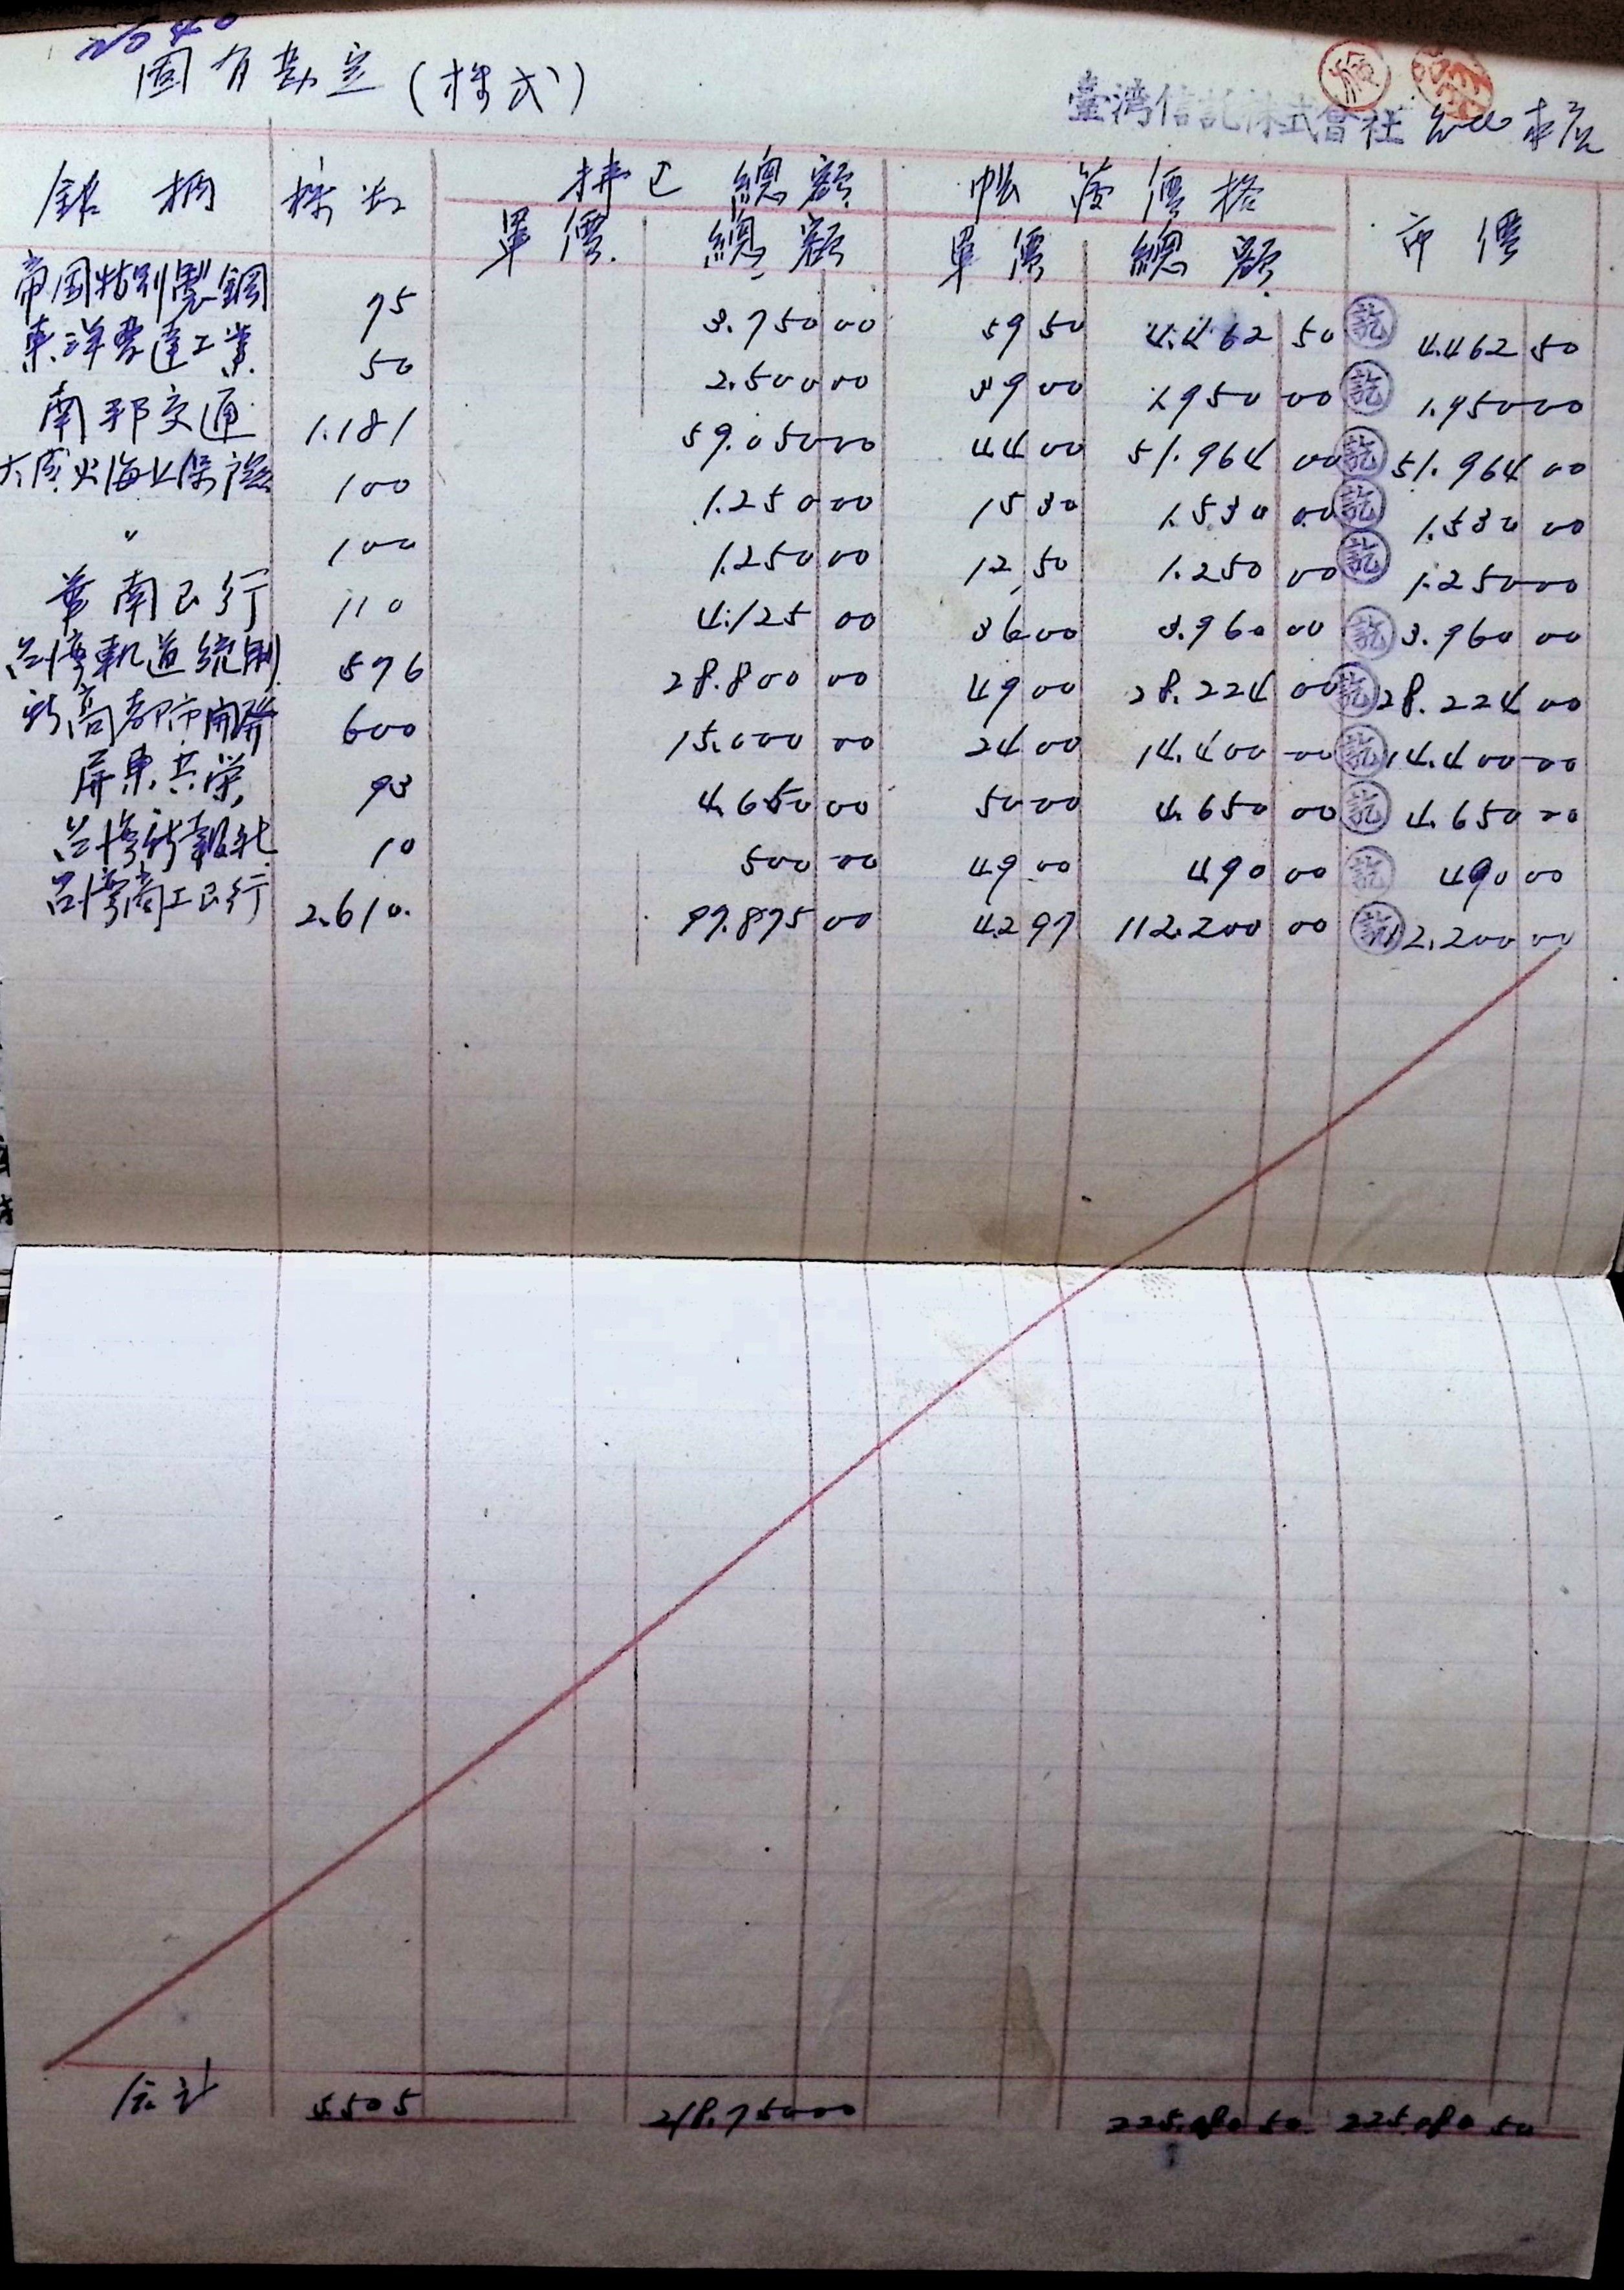 No 40
固有勘定(株式)
臺灣信託株式會社 台北本店
銘柄 株数 拂込總額 帳簿價格 市價
單價 總額 單價 總額
帝国特別製鋼 75 3.750 00 59 50 4.462 50 託 4.462 50
東洋 工業 50 2.500 00 39 00 1.950 00 託 1.950 00
南邦交通 1.181 59.050 00 44 00 51.964 00 託 51.964 00
大成火海上保険 100 1.250 00 15 30 1.530 00 託 1.530 00
〃 100 1.250 00 12 50 1.250 00 託 1.250 00
華南民行 110 4.125 00 36 00 3.960 00 託 3.960 00
台湾軌道統制 576 28.800 00 49 00 28.224 00 託 28.224 00
新高都市開發 600 15.000 00 24 00 14.400 00 託 14.400 00
屏東共栄 93 4.650 00 50 00 4.650 00 託 4.650 00
台湾新報社 10 500 00 49 00 490 00 託 490 00
台湾商工民行 2.610. 97.875 00 42 97 112.200 00 託 112.200 00
合計 5.505 218.750 00 225.080 50 225.080 50